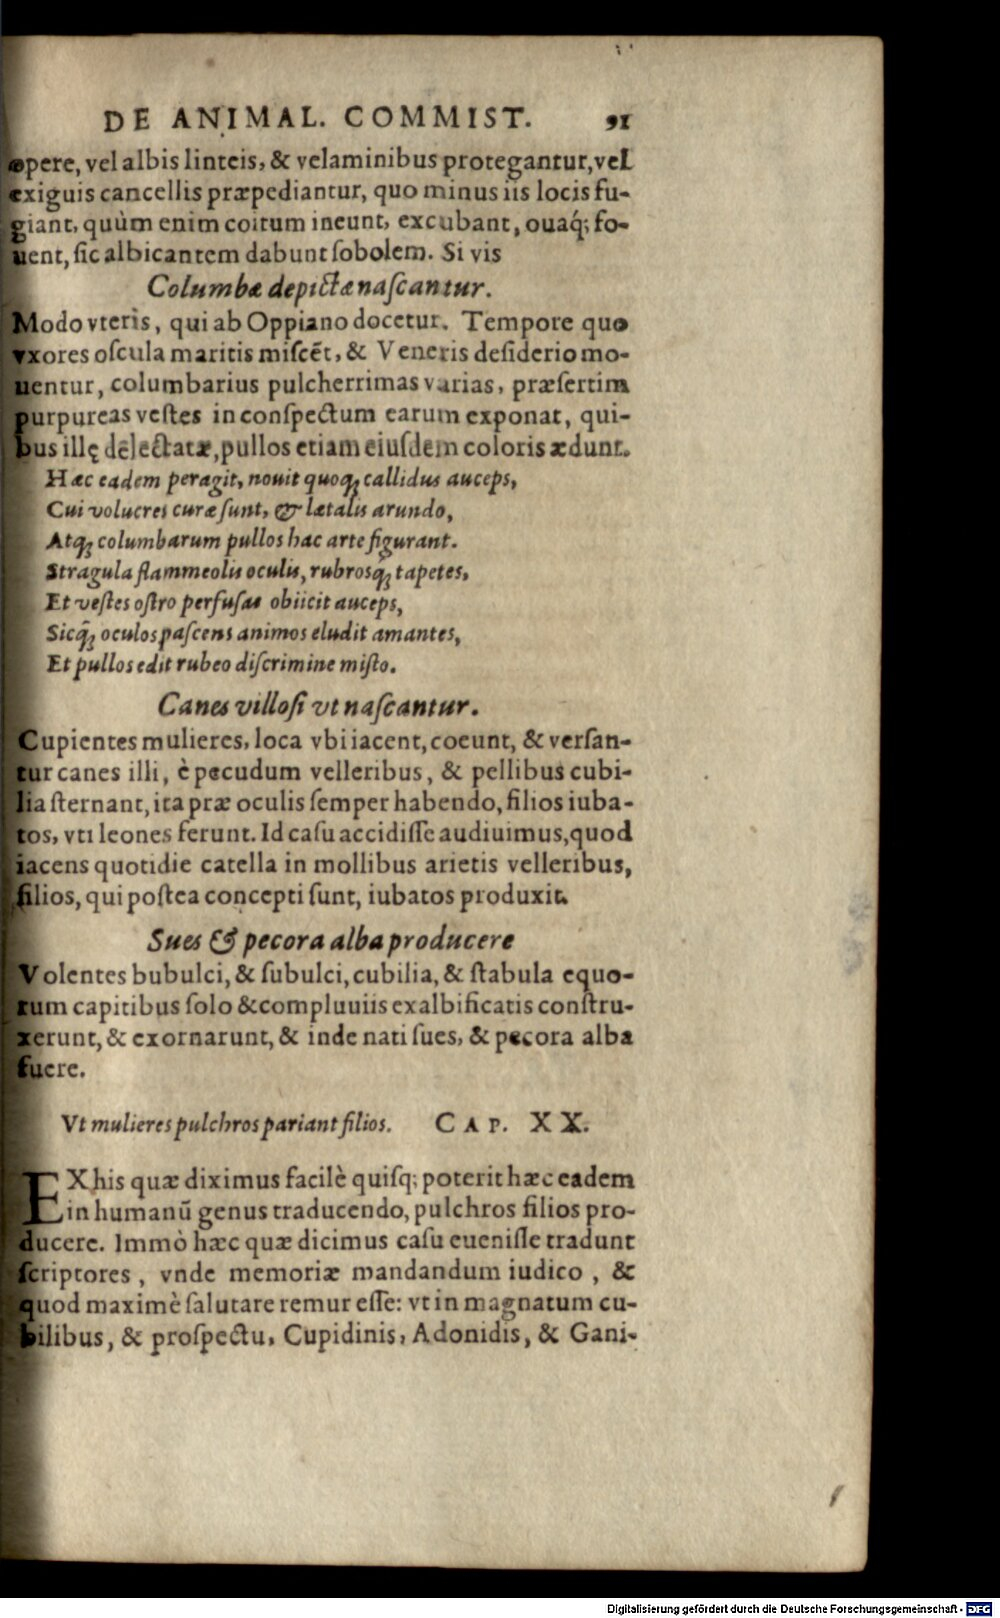 DE ANIMAL. COMMIST. 91
opere, vel albis linteis, & velaminibus protegantur, vel
exiguis cancellis præpediantur, quo minus iis locis fu-
giant, quùm enim coitum ineunt, excubant, ouaq́; fo-
uent, sic albicantem dabunt sobolem. Si vis
Columbæ depictæ nascantur.
Modo vteris, qui ab Oppiano docetur. Tempore quo
vxores oscula maritis miscẽt, & Veneris desiderio mo-
uentur, columbarius pulcherrimas varias, præsertim
purpureas vestes in conspectum earum exponat, qui-
bus illę delectatæ, pullos etiam eiusdem coloris ædunt.
Hæc eadem peragit, nouit quoq; callidus auceps,
Cui volucres curæ sunt, & lætalis arundo,
Atq; columbarum pullos hac arte figurant.
Stragula flammeolis oculis, rubrosq́; tapetes,
Et vestes ostro perfusas obiicit auceps,
Sicq́; oculos pascens animos eludit amantes,
Et pullos edit rubeo discrimine misto.
Canes villosi vt nascantur.
Cupientes mulieres, loca vbi iacent, coeunt, & versan-
tur canes illi, è pecudum velleribus, & pellibus cubi-
lia sternant, ita præ oculis semper habendo, filios iuba-
tos, vti leones ferunt. Id casu accidisse audiuimus, quod
iacens quotidie catella in mollibus arietis velleribus,
filios, qui postea concepti sunt, iubatos produxit.
Sues & pecora alba producere
Volentes bubulci, & subulci, cubilia, & stabula equo-
rum capitibus solo & compluuiis exalbificatis constru-
xerunt, & exornarunt, & inde nati sues, & pecora alba
fuere.
Vt mulieres pulchros pariant filios. CAP. XX.
EX his quæ diximus facilè quisq; poterit hæc eadem
in humanũ genus traducendo, pulchros filios pro-
ducere. Immò hæc quæ dicimus casu euenisse tradunt
scriptores, vnde memoriæ mandandum iudico, &
quod maximè salutare remur esse: vt in magnatum cu-
bilibus, & prospectu, Cupidinis, Adonidis, & Gani-
Digitalisierung gefördert durch die Deutsche Forschungsgemeinschaft - DFG